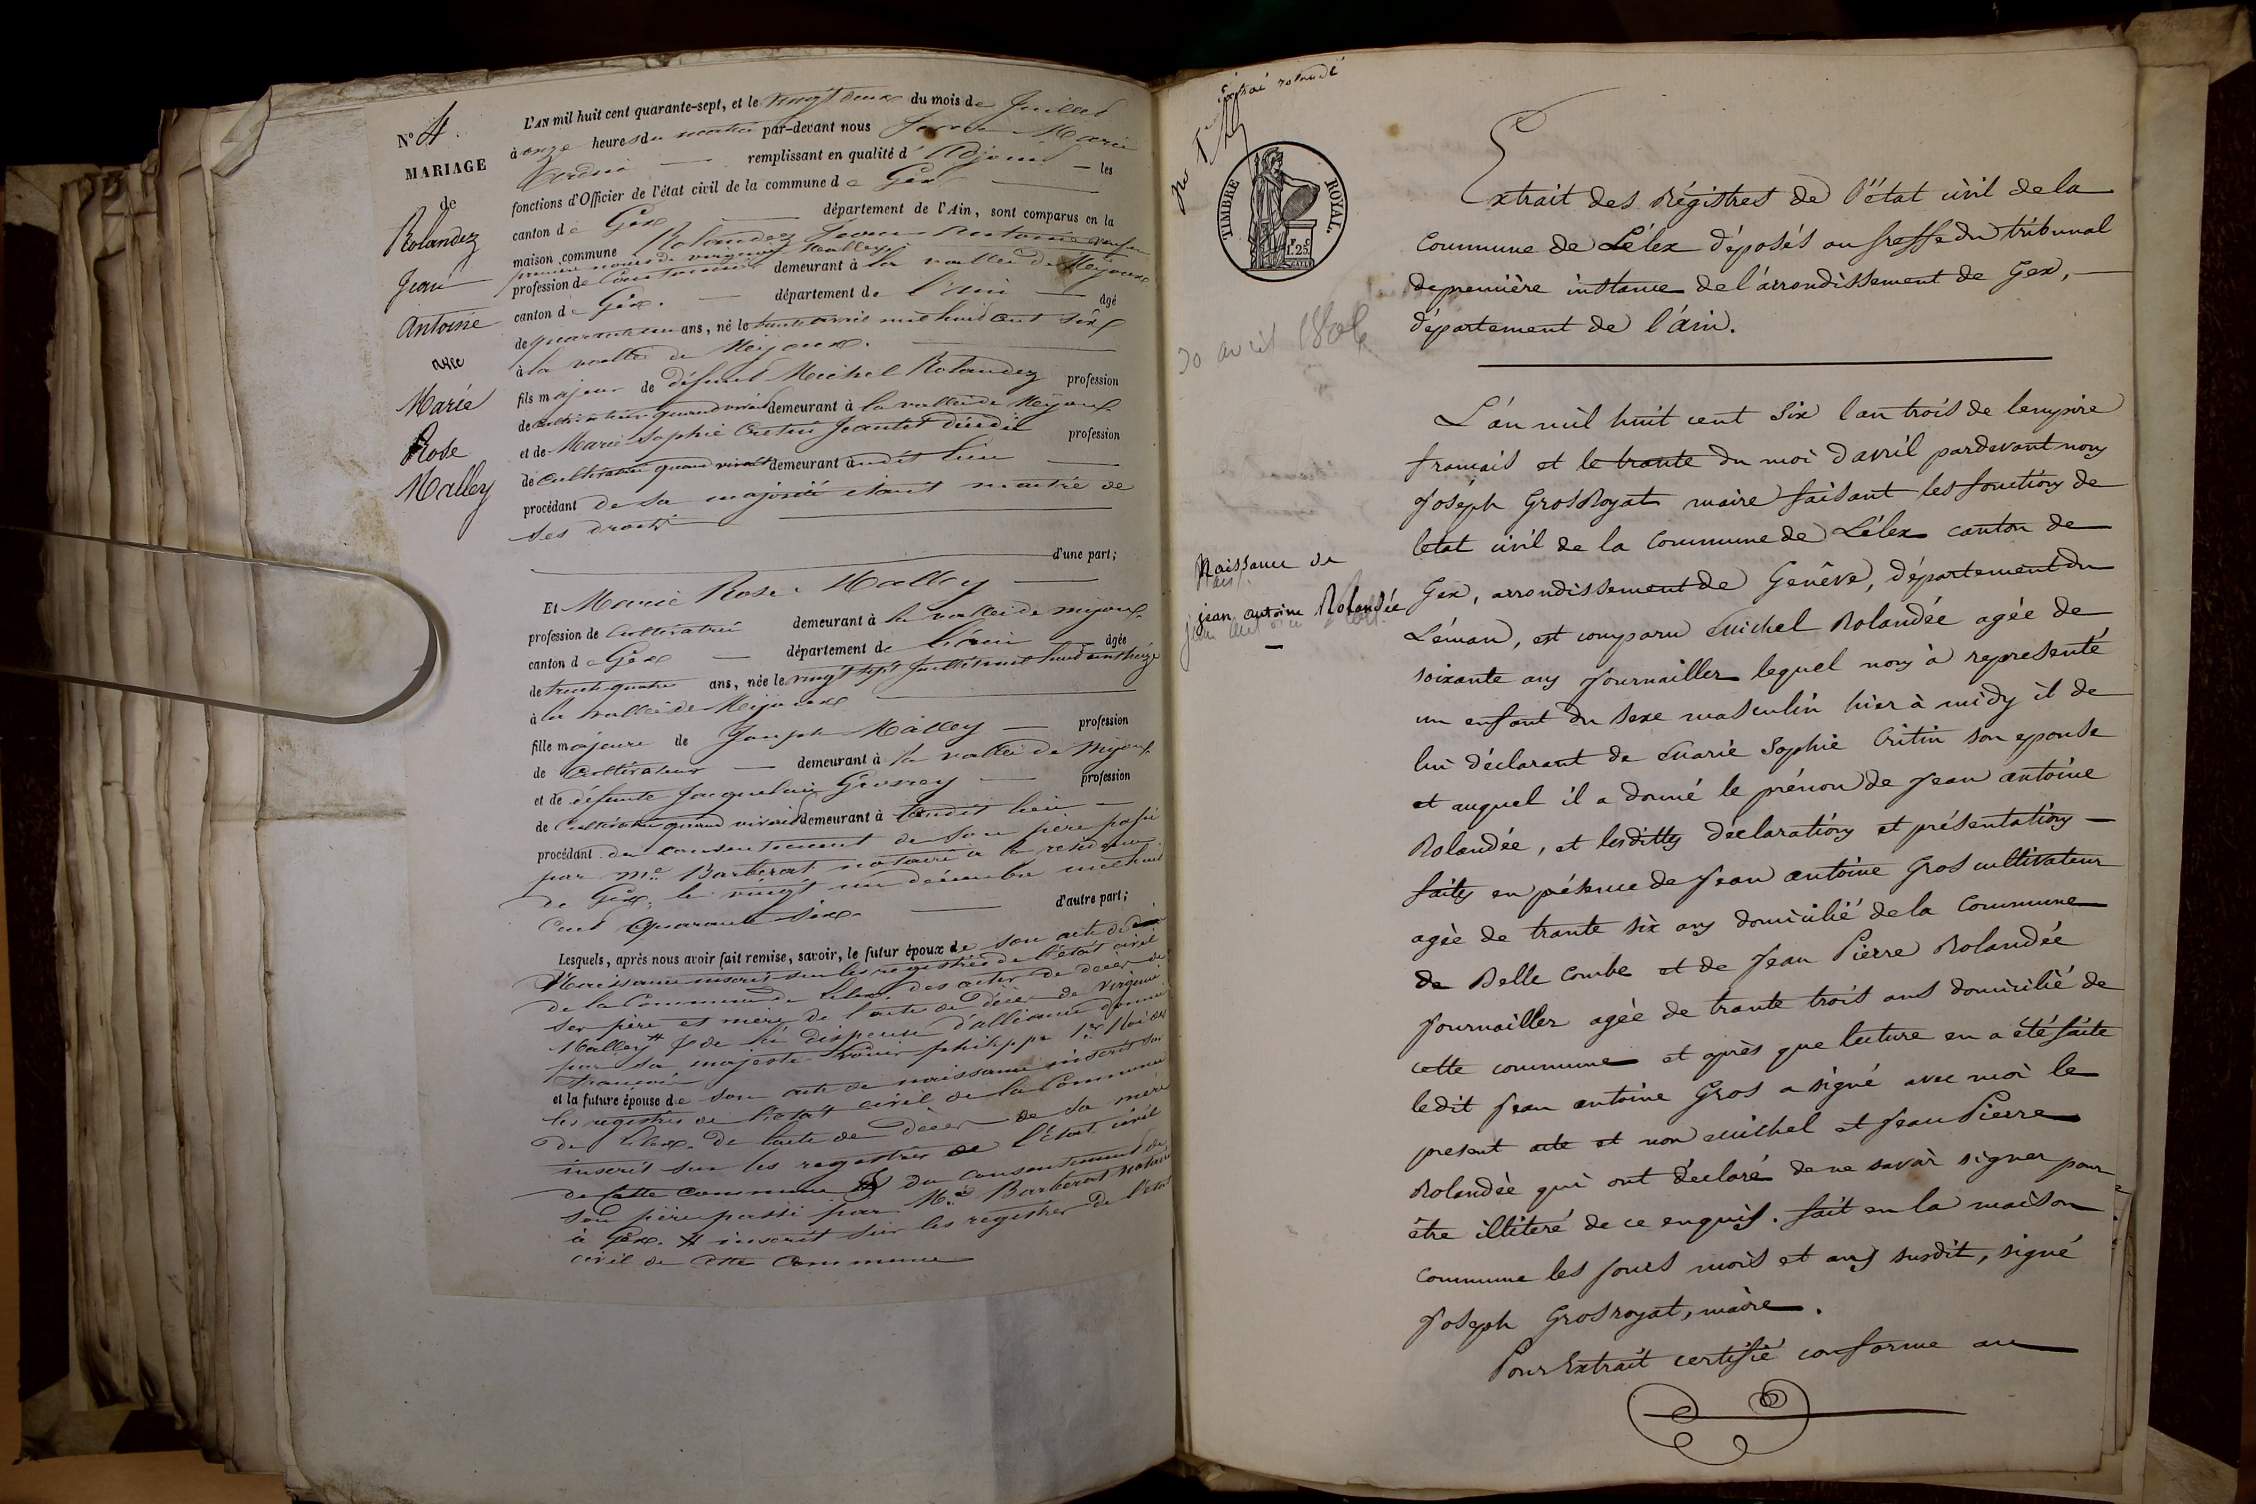 N° 4.
MARIAGE
de
Rolandez
Jean
Antoine
avec
Marie
Rose
Malley
L'AN mil huit cent quarante-sept, et le vingt deux du mois de Juillet
à onze heures du matin par-devant nous Marie
remplissant en qualité d'Adjoint les
fonctions d'Officier de l'état civil de la commune de Gex
canton de Gex département de l'Ain, sont comparus en la
maison commune Rolandez Jean Antoine veuf en
premier noces de Virginie Malley
profession de demeurant à la vallée de Mijoux
canton de Gex. département de l'Ain âgé
de quarante un ans, né le trente avril mil huit cent six
à la vallée de Mijoux.
fils majeur de défunt Michel Rolandez profession
de cultivateur quand vivait demeurant à la vallée de Mijoux
et de Marie Sophie Cretin Jeantet profession
de cultivatrice quand vivait demeurant audit lieu
procédant de sa majorité étant maitre de
ses droits
d'une part;
Et Marie Rose Malley
profession de Cultivatrice demeurant à la vallée de mijoux
canton de Gex département de l'Ain âgée
de trente quatre ans, née le vingt sept Juillet mil huit cent treize
à la vallée de Mijoux
fille majeure de Joseph Malley profession
de Cultivateur demeurant à la vallée de Mijoux
et de défunte Jacqueline Grosrey profession
de Cultivatrice quand vivait demeurant à audit lieu
procédant du consentement de son père passé
par Me Barberat notaire à la résidence
de Gex, le vingt un décembre mil huit
cent quarante six.
d'autre part;
Lesquels, après nous avoir fait remise, savoir, le futur époux de son acte de
Naissance inscrit sur les registres de l'état civil
de la Commune de Lélex. des actes de décès de
ses père et mère de l'acte de décès de Virginie
Malley # & de la dispense d'alliance donnée
par sa majesté Louis philippe 1er Roi des
français
et la future épouse de son acte de naissance inscrit sur
les registres de l'état civil de la Commune
de Lélex. de l'acte de décès de sa mère
inscrit sur les registres de l'état civil
de cette commune & du consentement de
son père passé par Me Barberat Notaire
à Gex. # inscrit sur les registres de l'état
civil de cette Commune
TIMBRE ROYAL
30 avril 1806
Naissance de
jean antoine Rolandée
Extrait des Régistres de l'état civil de la
Commune de Lélex déposés au greffe du tribunal
de première instance de l'arrondissement de Gex,
département de l'ain.
L'an mil huit cent six l'an trois de lempire
français et le trante du moi davril pardevant nous
Joseph GrosRoyat maire faisant les fonctions de
letat civil de la Commune de Lélex canton de
Gex, arrondissement de Genève, département du
Léman, est comparu Michel Rolandée agée de
soixante ans journailler lequel nous à representé
un enfant du sexe masculin hier à midy il de
lui déclarant de Marie Sophie Critin son epouse
et auquel il a donné le prénon de Jean antoine
Rolandée, et lesdittes déclarations et présentations
faites en présence de Jean antoine Gros cultivateur
agée de trante six ans domicilié de la Commune
de Belle Combe et de Jean Pierre Rolandée
journailler agée de trante trois ans domicilié de
cette commune et après que lecture en a été faite
ledit Jean antoine Gros a signé avec moi le
present acte et non Michel et Jean Pierre
Rolandée qui ont déclaré de ne savoir signer pour
être illiteré de ce enquis. fait en la maison
commune les jours mois et ans susdit, signé
Joseph Grosroyat, maire.
Pour Extrait certifié conforme au